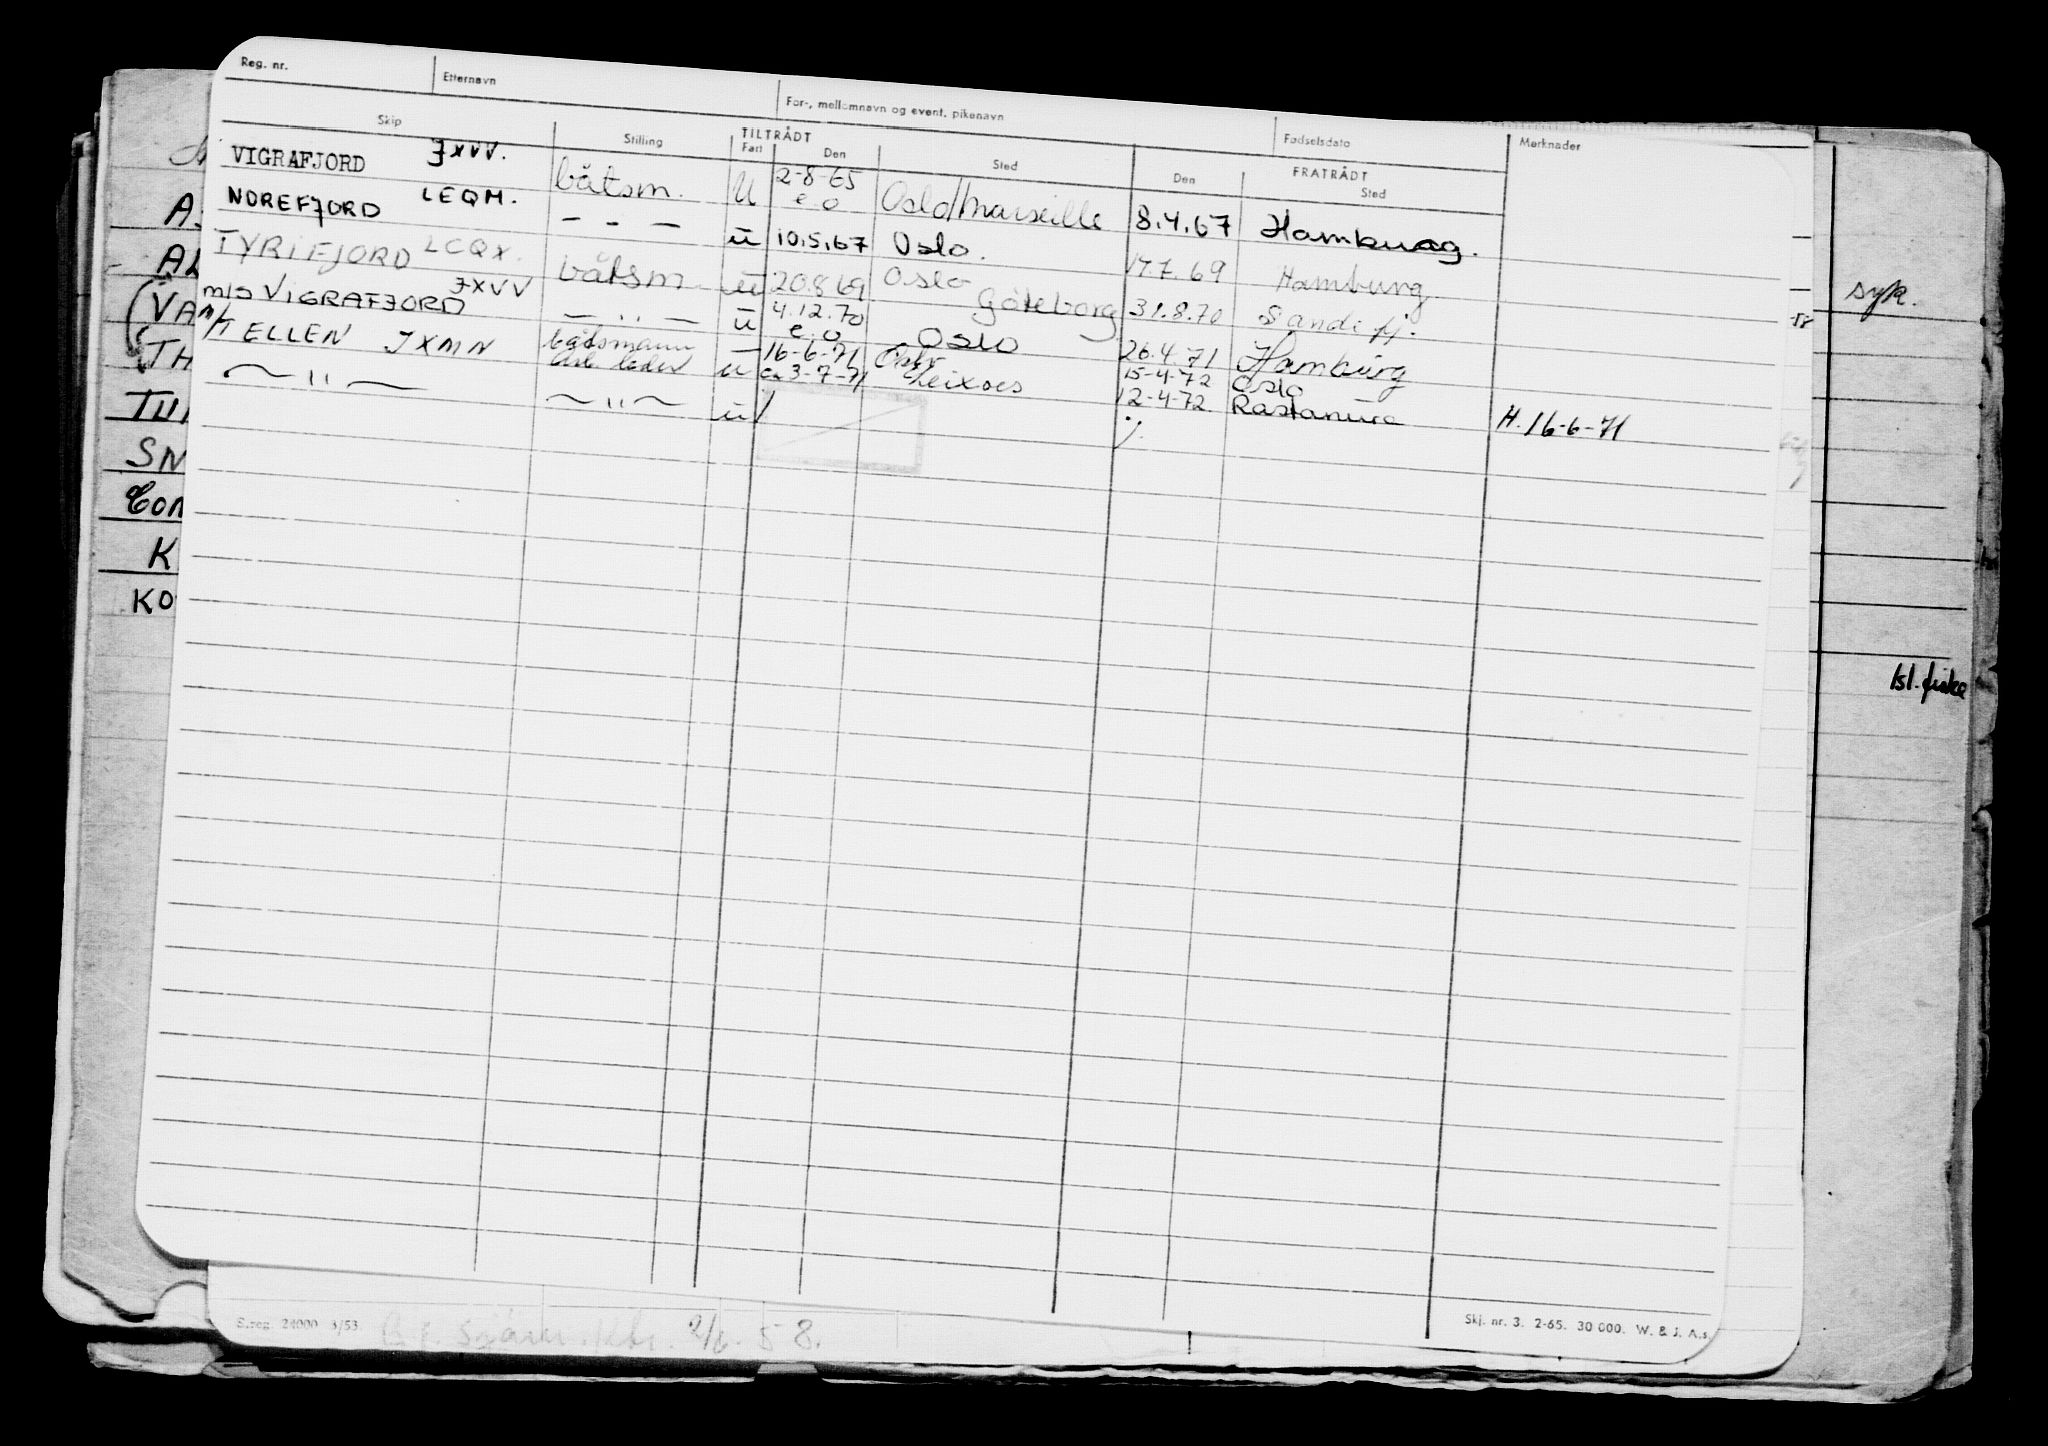 Reg. nr. Etternavn For-, mellomnavn og event. pikenavn Fødselsdato Merknader
Skip Stilling TILTRÅDT Fart Den Sted FRATRÅDT Den Sted
VIGRAFJORD JXVV. båtsm. U 2-8-65 e.o Oslo/Marseille 8.4.67 Hamburg.
NOREFJORD LEQM. - - - ū 10.5.67 Oslo. 17.7.69 Hamburg
TYRIFJORD LCQX. båtsm. ū 20.8.69 Oslo Göteborg 31.8.70 Sandefj.
M/S VIGRAFJORD JXVV — " — ū 4.12.70 e.o Oslo 26.4.71 Hamburg
M/T ELLEN JXMN båtsmann — 16-6-71 Oslo 15-4-72 Oslo
arb. leder u ca 3-7-71 Leixoes 12-4-72 Rastanura H. 16-6-71
— " — — " — ū /
A
AL
VA
TH
SN
K
KO
syk.
58
isl. fiske
S.reg. 24000 3/53. 2/6. 58.
Skj. nr. 3. 2-65. 30 000. W. & J. A.s.